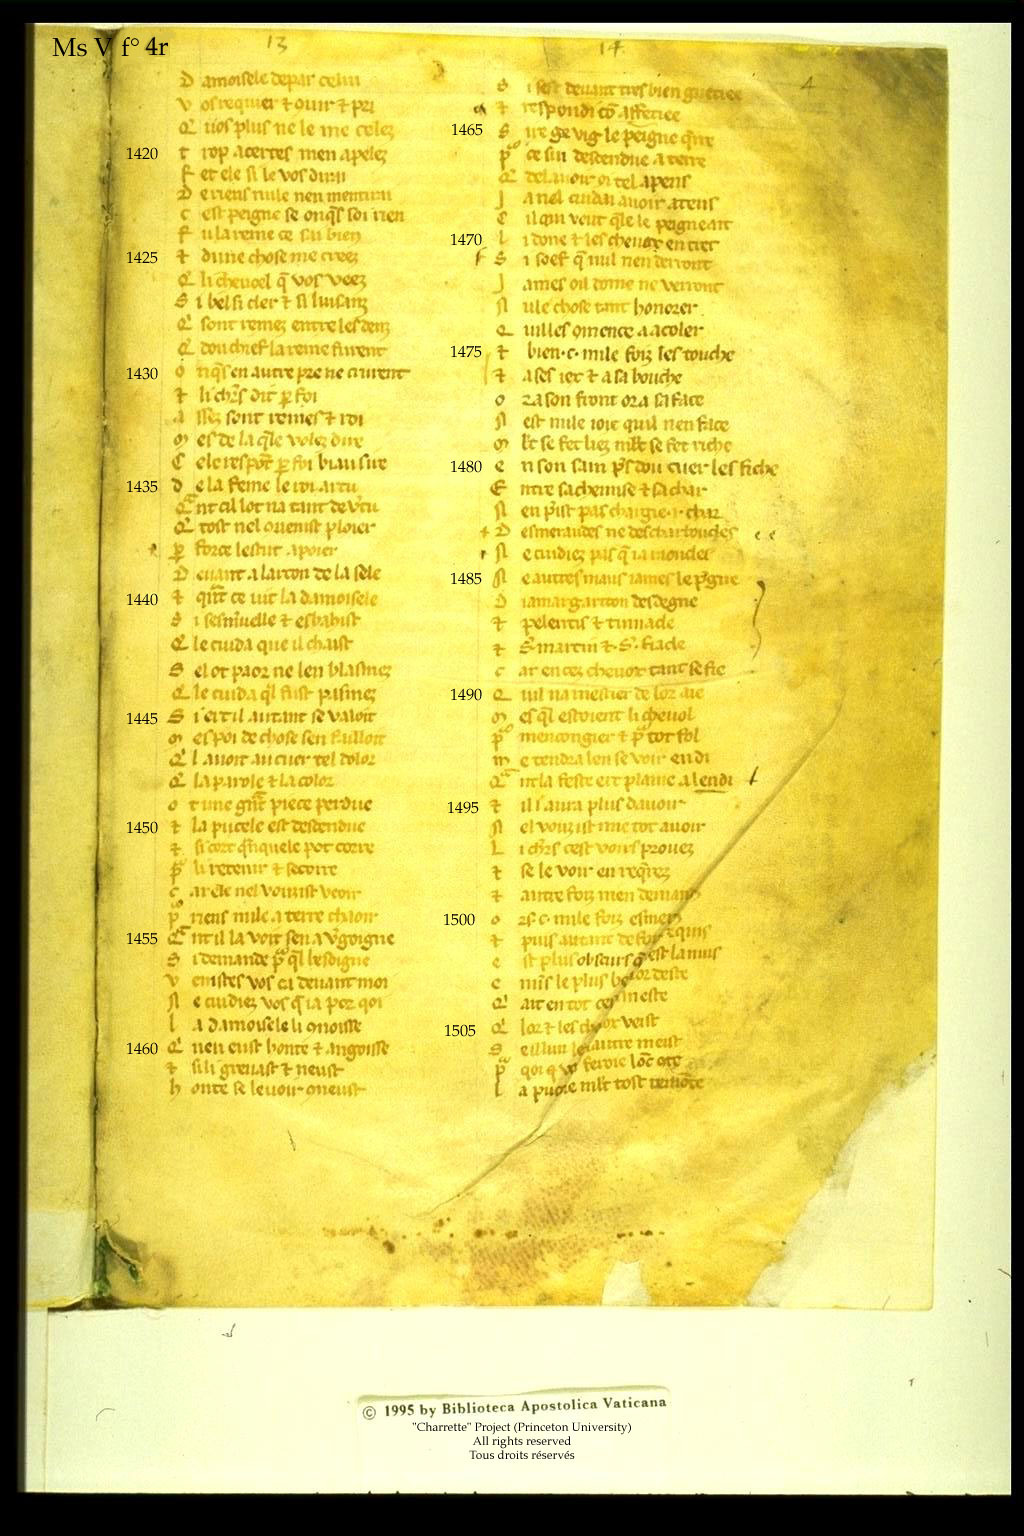 Ms V f° 4r
13
14
4
D amoisele depar celui
V os requier ⁊ ouir ⁊ pri
Q̄ uos plus ne le me celez
1420
t rop acertes men apelez
f et ele si le vos dirai
D e riens nule nen mentirai
c est peigne se onq̄s soi rien
f u la reine ce sai bien
1425
⁊ dune chose me creez
Q̄ li cheuoel q̄ vos veez
S i bel si cler ⁊ si luisanz
Q̄ sont remez entre les denz
Q̄ dou chief la reine furent
1430
o nq̄s en autre pre ne crurent
⁊ li chr̄s dit ꝑ foi
a ssez sont reines ⁊ roi
m es de la q̄le volez dire
C ele respōt ꝑ foi biau sire
1435
d e la feme le roi artu
Q̄nt cil lot na tant de v̾tu
Q̄ tost nel couenist ploier
ꝑ force lestut apoier
D euant a larcon de la sele
1440
⁊ qn̄t ce uit la damoisele
S i sesmuelle ⁊ esbahist
Q̄ le cuida que il chaist
S el ot paor ne len blasmez
Q̄ le cuida ql̄ fust pasmez
1445
S i ert il autant se valoit
m es poi de chose sen failloit
Q̄ l auoit au cuer tel dolor
Q̄ la parole ⁊ la color
o t une gn̄t piece perdue
1450
⁊ la pucele est descendue
⁊ si cort q̄nquele pot corre
p̄ li retenir ⁊ secorre
c ar ele nel vousist veoir
p̄ riens nule a terre chaoir
1455
Q̄nt il la voit sen a v̾goigne
S i demande p̄ ql̄ besoigne
V enistes vos ca deuant moi
N e cuidiez vos q̄ ia por qoi
l a damoisele li conoisse
1460
Q̄ nen eust honte ⁊ angoisse
⁊ si li greuast ⁊ neust
h onte se le uoir coneust
S i sest deuant tres bien guetiee
⁊ respondi cō afetiee
1465
S ire ge vig le peigne q̄rre
p̄ ce sui descendue a terre
Q̄ delauoir oi tel apens
J a nel cuidai auoir atens
C il qui veut q̄le le peigne ait
1470
L i done ⁊ les cheuox en tret
S i soef q̄ nul nen deront
J ames oil dome ne verront
N ule chose tant honorer
Q uilles comence a acoler
1475
⁊ bien .c. mile foiz les touche
⁊ a ses iez ⁊ a sa bouche
o ra son front ora sa face
N est nule ioie quil nen face
m lt se fet liez mlt se fet riche
1480
e n son sain p̄s dou cuer les fiche
E ntre sa chemise ⁊ sa char
N en p̄ist pas chargie .i. char
D esmeraudes ne descharboucles
N e cuidiez pas q̄ ia moncles
1485
N e autres maus iames le p̄gne
D iamargariton desdegne
⁊ pelentis ⁊ tiriade
⁊ S. martin ⁊ S. fiacle
c ar en cez cheuox tant se fie
1490
Q uil na mestier de lor aie
m es ql̄ estoient li cheuol
p̄ mencongier ⁊ p̄ tot fol
m e tendra len se voir en di
Q̄nt la feste ert plaine a lendi
1495
⁊ il i aura plus dauoir
N el vousist mie tot auoir
L i chr̄s cest voirs prouez
⁊ se le voir en req̄rez
⁊ autre foiz men demand
1500
o rs .c. mile foiz esmer
⁊ puis autant de foiz requis
e st plus obscurs q̄ nest la nuis
c
Q̄
1505
Q̄ lor ⁊ les cheuox veist
S e lun lez lautre meist
p̄ qoi q̄ vos feroie lōc ote
L a pucele mlt tost remōte
© 1995 by Biblioteca Apostolica Vaticana
"Charrette" Project (Princeton University)
All rights reserved
Tous droits réservés